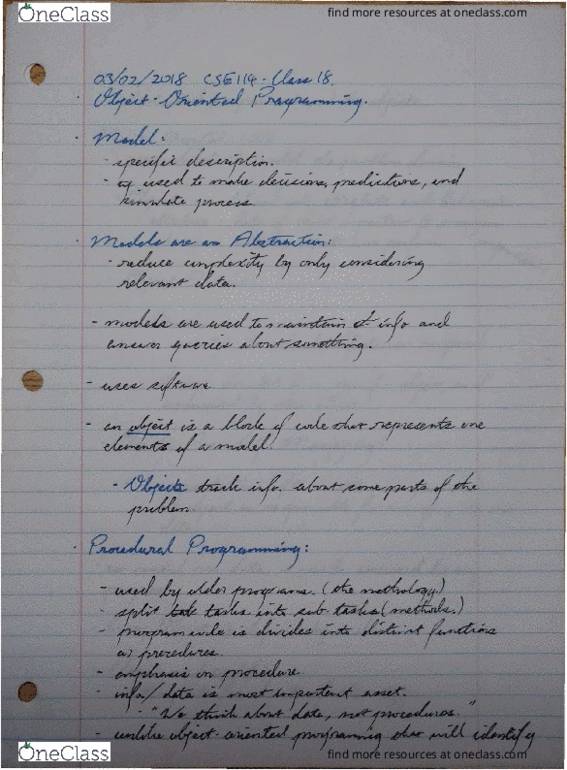 OneClass
find more resources at oneclass.com
03/02/2018 CSE114 - Class 18.
· Object-Oriented Programming.
· Model:
- specific description.
- used to make decisions, predictions, and
simulate process
· Models are an Abstraction:
- reduce complexity by only considering
relevant data.
- models are used to maintain info and
answer queries about something.
- uses software
- an object is a block of code that represents one
elements of a model.
- Objects track info. about some parts of the
problem.
· Procedural Programming:
- used by older programs. (the methology)
- split tasks into sub-tasks (methods.)
- program code is divides into distinct functions
or precedures.
- emphasis on procedure
- info/data is most important asset.
- "We think about data, not procedures."
- unlike object-oriented programming that will identify
OneClass
find more resources at oneclass.com